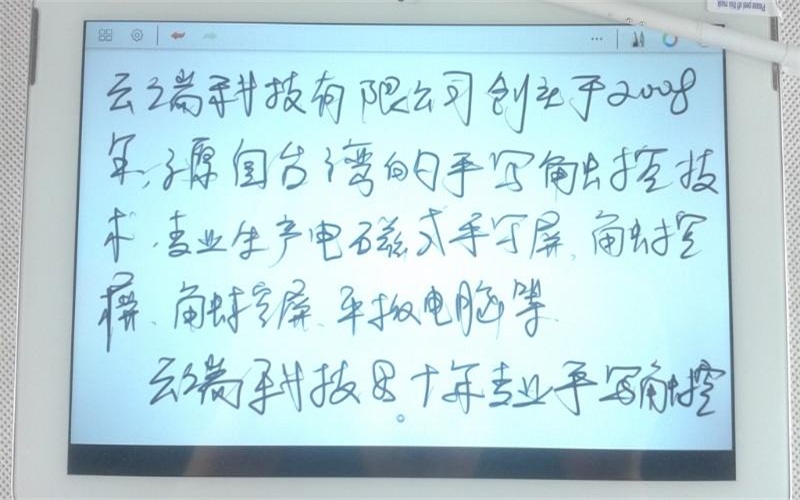 Please peel off this mask
云端科技有限公司创立于2008
年,源自台湾的手写触控技
术,专业生产电磁式手写屏、触控
屏、触控屏、平板电脑等.
云端科技 十年专业手写触控